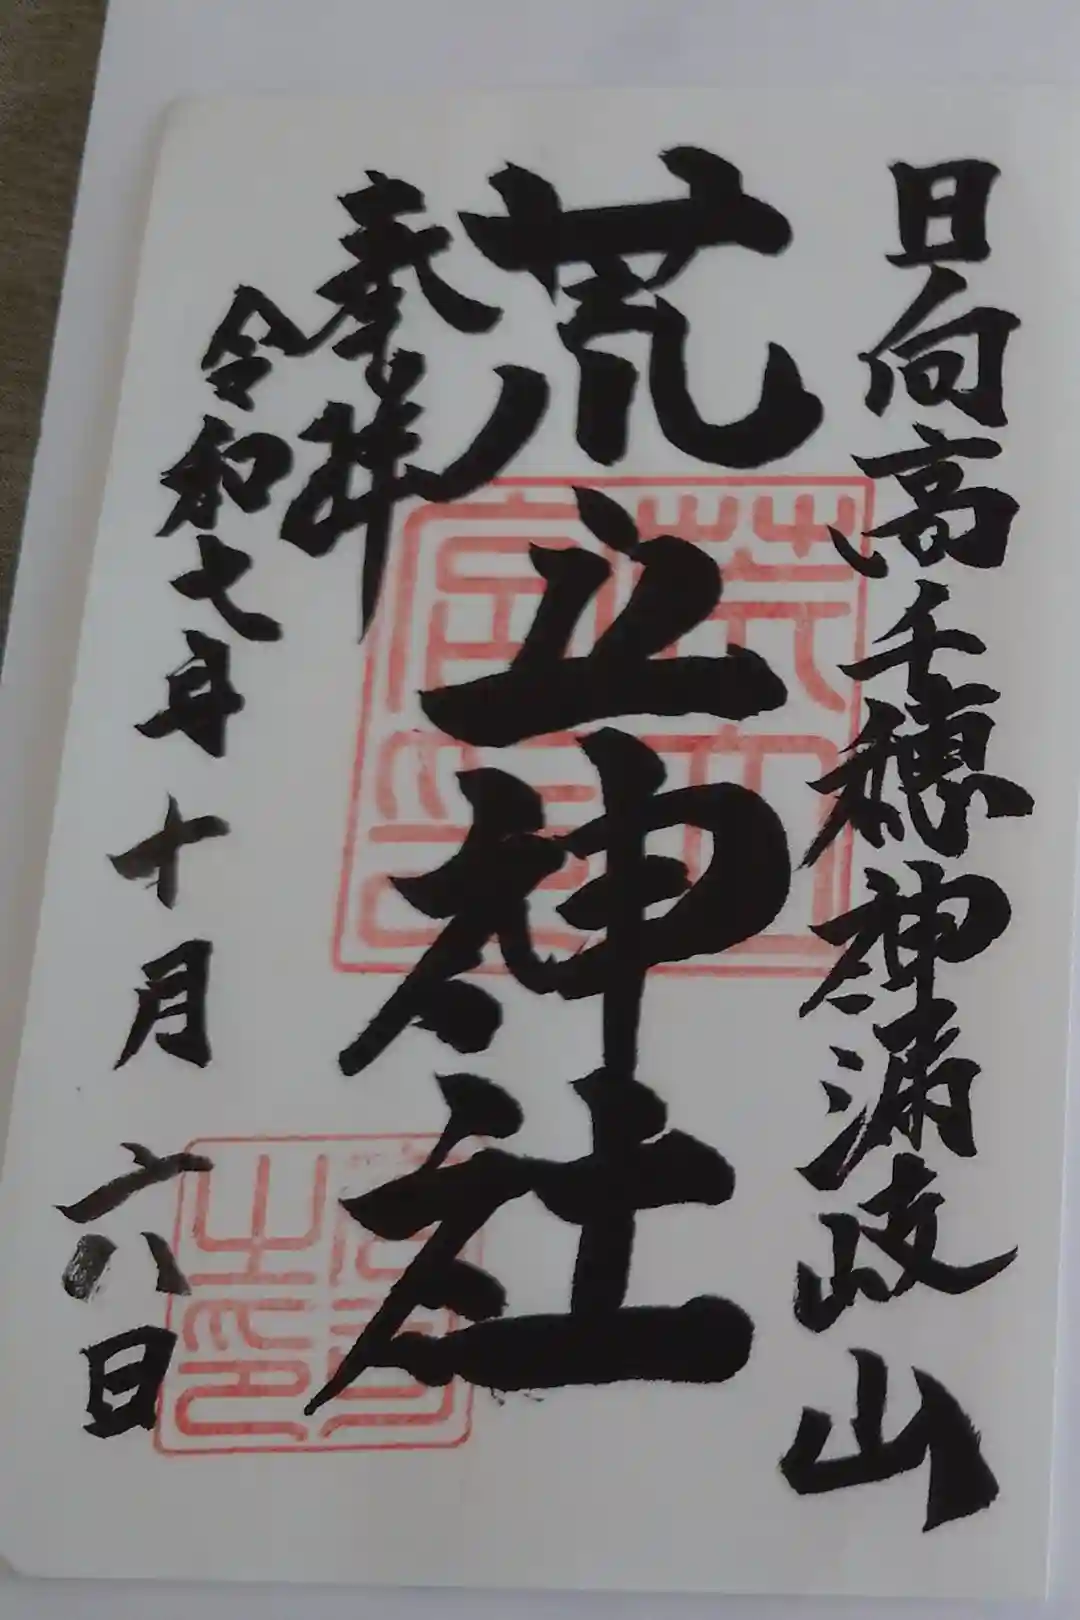 日向高千穂神漏岐山
荒立神社
奉拝
令和七年十月六日
荒立宮印